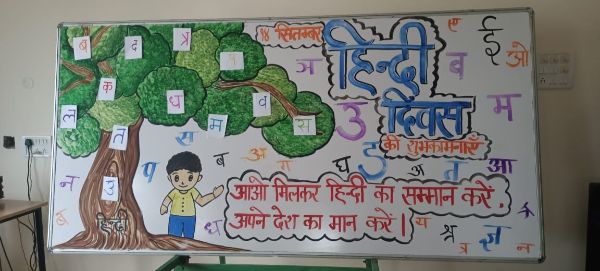 १४ सितम्बर
हिन्दी
दिवस
की शुभकामनाएँ
आओ मिलकर हिन्दी का सम्मान करें,
अपने देश का मान करें।
हिन्दी
ब
द
त्र
क
ध
म
व
स
ल
त
उ
स
म
प
ब
अ
ग
घ
ड
अ
त
आ
न
ध
ञ
उ
ब
म
ए
ई
ओ
य
श्र
ज्ञ
न